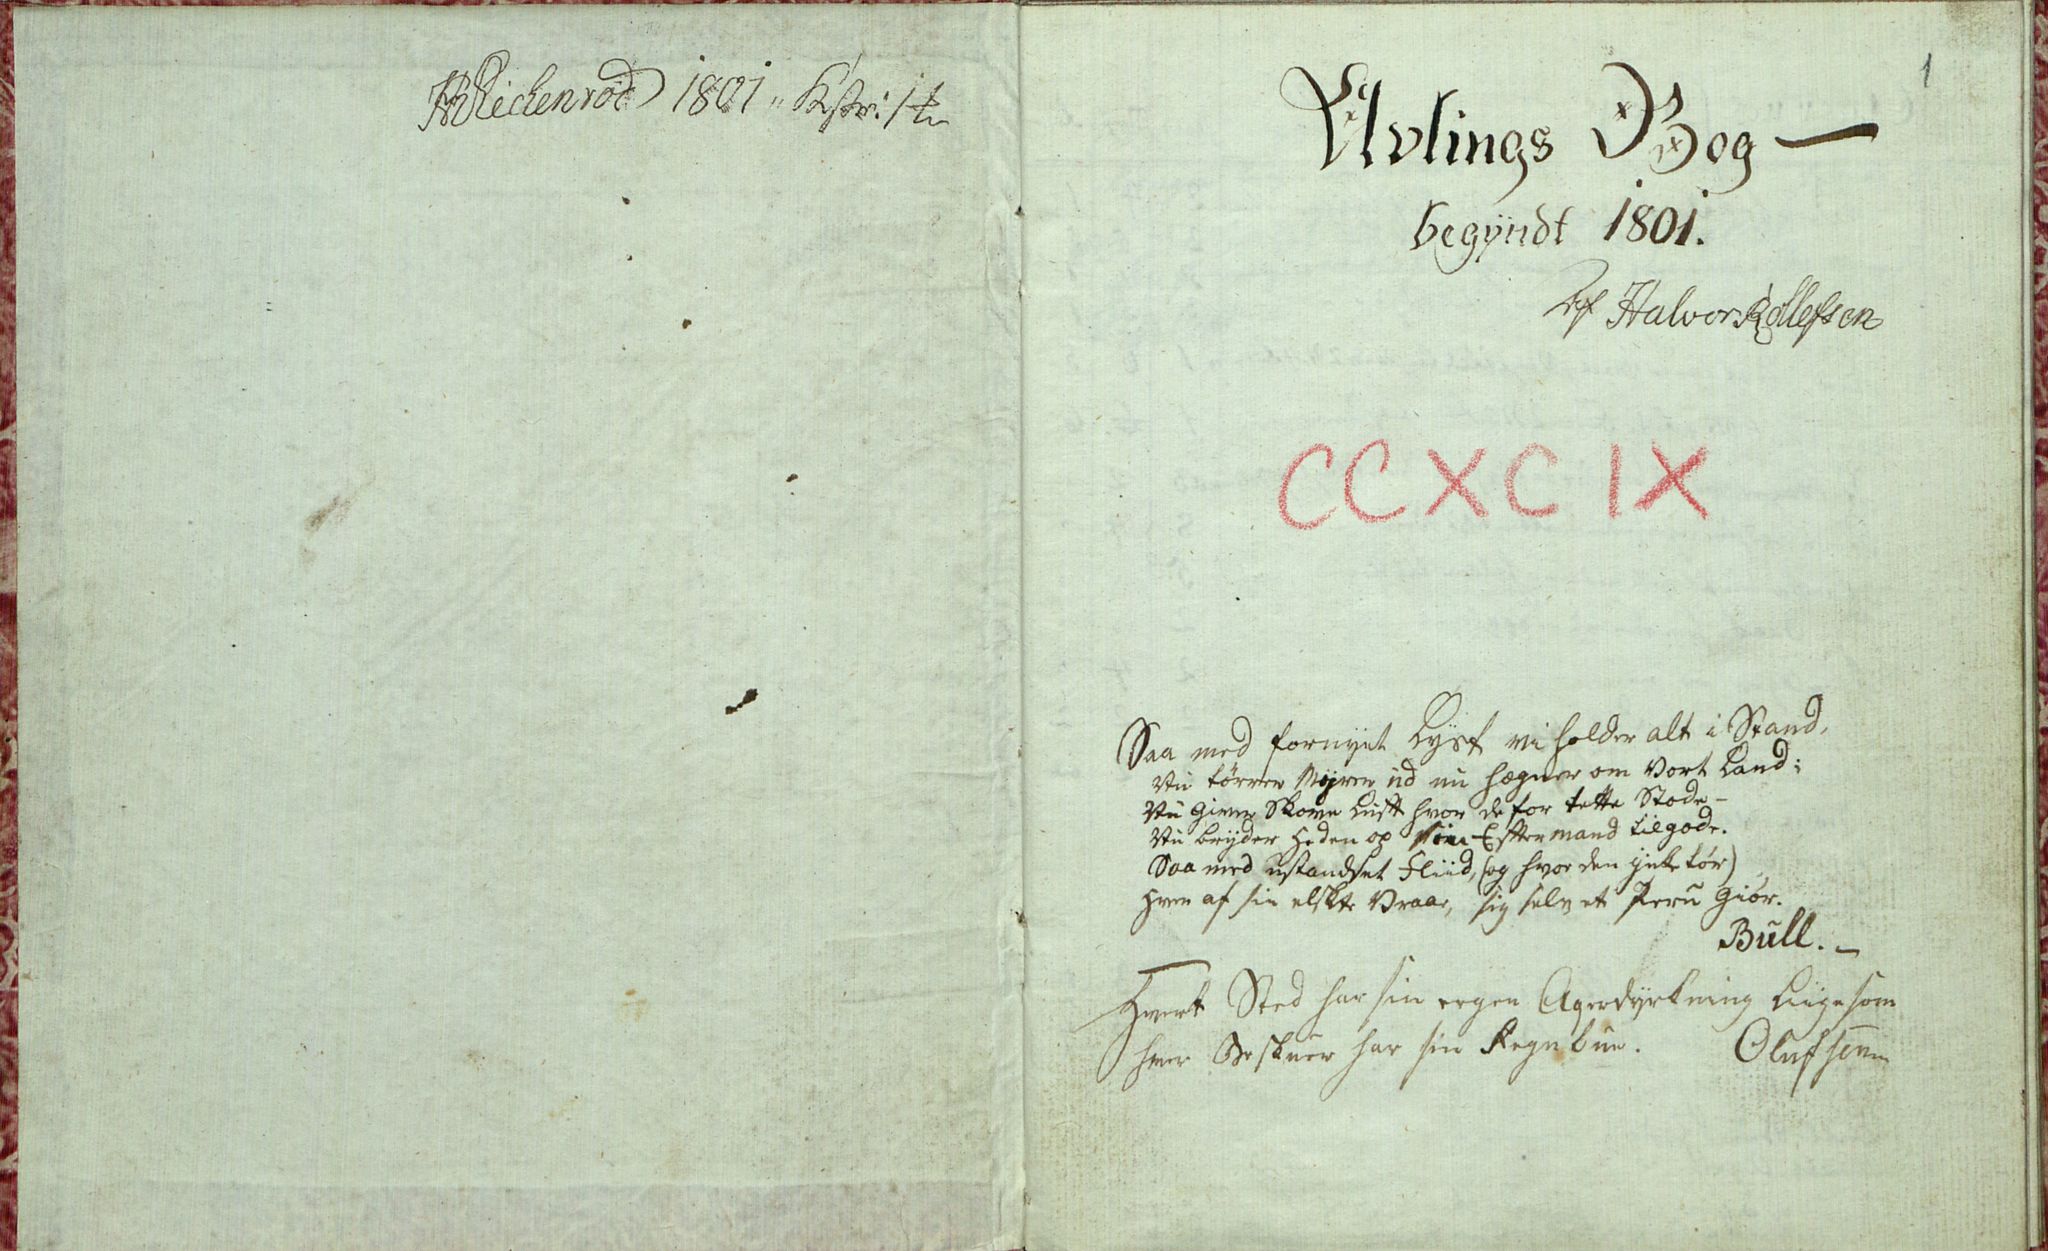 1801
1
Avlings Bog —
begÿndt 1801.
af Halvor Rollefsen
CCXCIX
Saa med fornÿet Lÿst vi holder alt i Stand,
Nu törrer Mÿren ud nu hægner om Vort Land;
Nu Giver Skoven Luft hvor de for tette Stode –
Nu brÿder Heden op Efftermand til gode.
Saa med ustandset Fliid, (og hvor den ÿnke tör)
Hver af sin elskte Vraae, sig selv et Peru Giör.
Bull. –
Hvert Sted har sin egen Agerdÿrkning liigesom
hver Beskuer har sin Regnbue. Olufsen